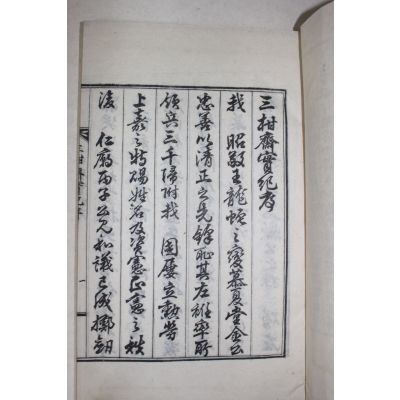 三柑齋實紀序
我 昭敬王龍蛇之變慕夏堂金公
忠善以清正之先鋒恥其左袵率所
領兵三千歸附我 國屢立勳勞
上嘉之特賜姓名及資憲正憲之秩
後 仁廟丙子公見和議已成擲劒